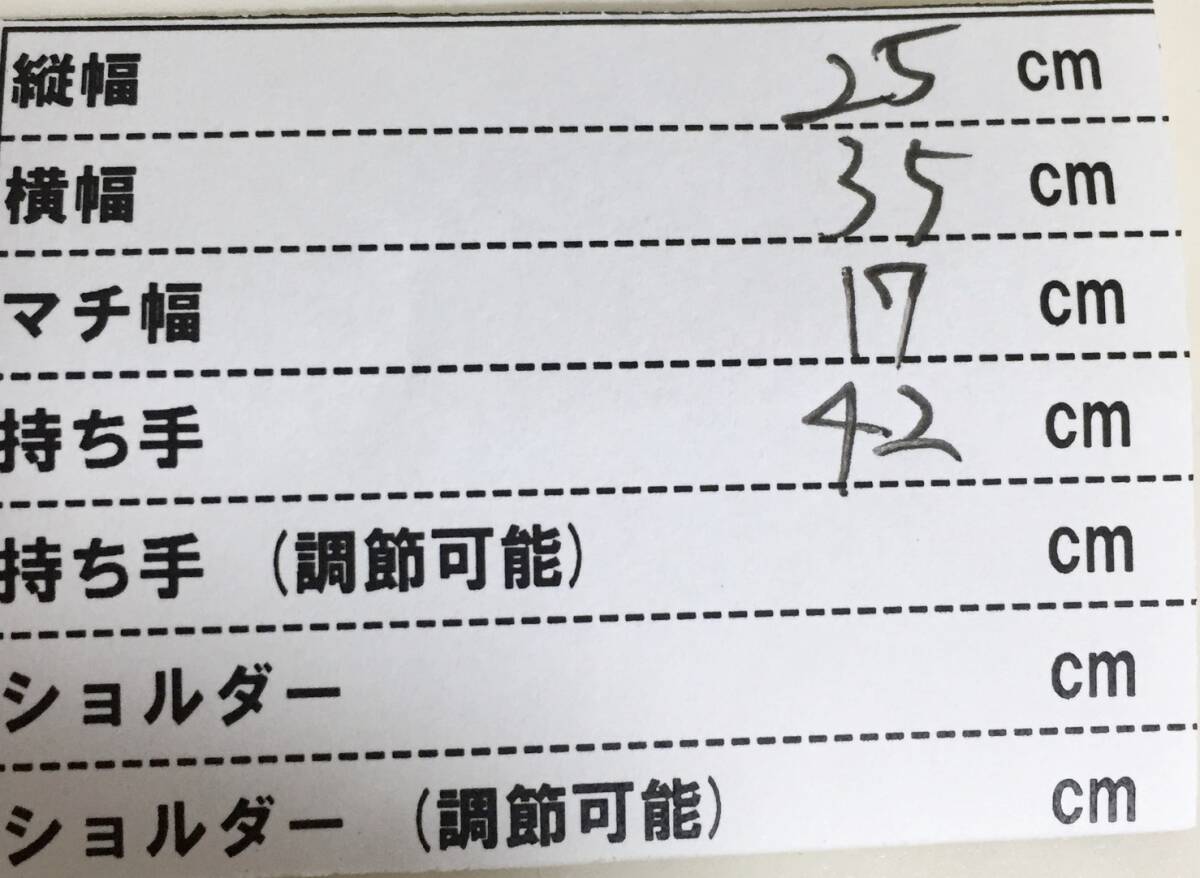 縦幅 25 cm
横幅 35 cm
マチ幅 17 cm
持ち手 42 cm
持ち手 (調節可能) cm
ショルダー cm
ショルダー (調節可能) cm